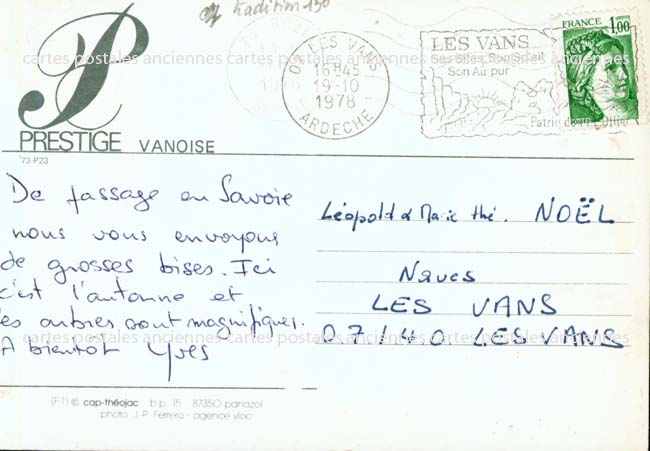 tradition 150
P
PRESTIGE VANOISE
73-P23
07 LES VANS
16H45
19-10
1978
ARDECHE
LES VANS
Ses Sites, Son Soleil
Son Air pur
FRANCE 1,00
cartes postales anciennes cartes postales anciennes cartes postales anciennes
De passage en Savoie
nous vous envoyons
de grosses bises. Ici
c'est l'automne et
les arbres sont magnifiques.
A bientot Yves
Léopold & Marie thé. NOËL
Naves
LES VANS
07140 LES VANS
cartes postales anciennes cartes postales anciennes cartes postales anciennes
(F-T) © cap-théojac b.p. 15 87350 panazol
photo J.-P. Ferrero - agence vloo